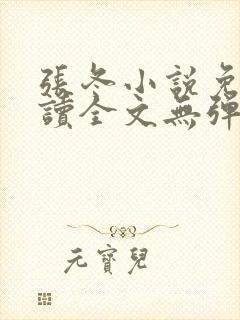 張冬小說免
讀全文無彈
元寶兒